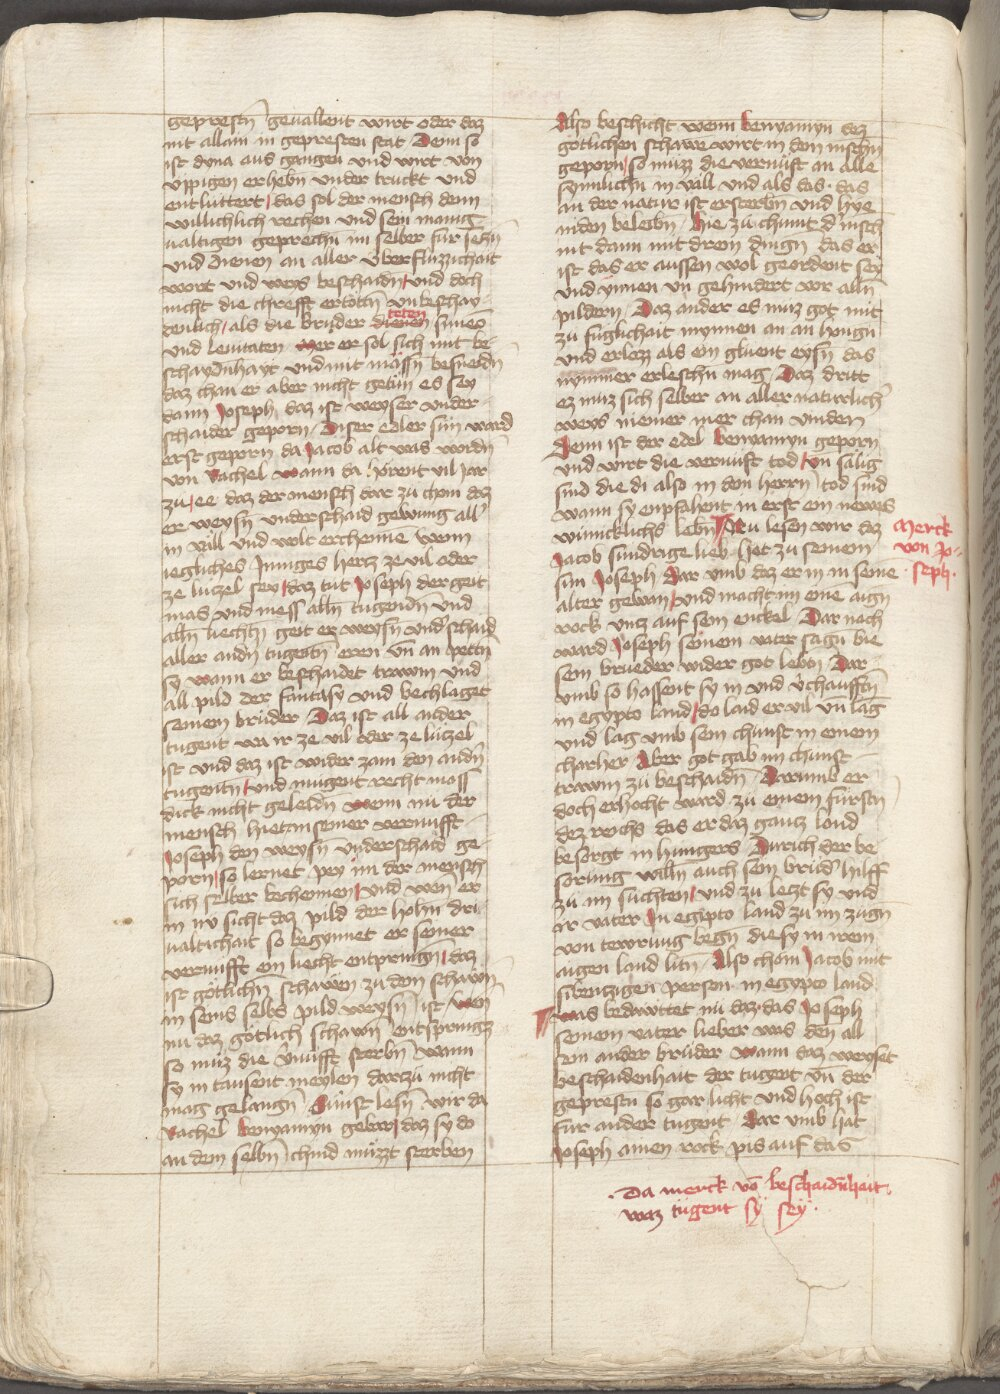 geprestn̄ geuallent wirt oder daz
nit allain in gepresten stat Denn so
ist dyna aus gangen vnd wirt von
üppigen erhebn̄ vnder truckt vnd
entluttert / das sol der mensch denn
willichlich rechen vnd sein manig
ualtigen geprechn̄ im selber für sehn̄
vnd dienen an aller überflüzzichait
wort vnd weys beschaidn̄ / vnd doch
nicht die chrefft ertöttn̄ vnbeschay
denlich / als die brüder dienen symeō
teten
vnd leuitaten wer er sol sich mit be
schaydnhayt vnd mit mässn̄ besneidn̄
daz chan er aber nicht getün es sey
dann Joseph daz ist weyser vnder
schaider geporn / Diser edler sun ward
erst geporn da Jacob alt was wordn̄
von Rachel wann da hörent vil jar
zu / ee daz der mensch dar zu chom daz
er weysn̄ underschaid gewung all
in vill vnd wolt erchenne wenn
iegliches Inniges hertz ze vil oder
ze lutzel sey / daz tut Joseph der geit
mas vnd mess alln̄ tugendn̄ vnd
alln̄ liechtn̄ geit er weysn̄ vnd schaid
aller andn̄ tugentn̄ errn vn̄ an pettn̄
sy wann er beschaidet trawm vnd
all pild der fantasy vnd bechlaget
seinem brüder Daz ist all ander
tugent wa ir ze vil oder ze lutzel
ist vnd daz ist wider zam den andn̄
tugentn̄ / vnd mugent recht mass
dick nicht geleidn̄ wenn nu der
mensch hietan seiner vernufft
Joseph den weysn̄ vnderschaid ge
porn / so lernet pey im der mensch
sich selber bechennen / vnd wen er
in nv sicht daz pild der hohn̄ dri
ualtichait so begynnet er seiner
vernufft ein liecht entpringn̄ / daz
ist götlichn̄ schawen zu dem schawn̄
in seins selbs pild weysn̄ ist / wen̄
nu daz götlich schawn̄ entspringt
so müz die vnüfft sterbn̄ wann
sy in tausent meylen darzü nicht
mag gelangn̄ / Sünst lesn̄ wir da
Rachel benyamyn gebar / daz sy do
an dem selbn̄ chind müzzt sterben
Also beschicht wenn benyamyn dez
götlichen schawe wirt in dem mschn̄
geporn / so müzz die vernuft an alle
synnlichn̄ in vall vnd als das das
an der natur ist ersterbn̄ vnd hye
niden beleibn̄ / Hie zu chumt d̄ msch̄
nit dann mit drein dingn̄ das er
ist das er aussen wol geordent sey
vnd ynnen vn gehindert vor alln̄
pildern / Daz ander es muz got mit
zu fuglichait mynnen an an hengn̄
vnd erlozz als ein gluent eysn̄ das
nymmer erleschn̄ mag / Daz dritt
ez muz sich selber an aller naturlich
weys niemer mer chan vinden
Denn ist der edel benyamyn geporn̄
vnd wirt die vernuft tod / vn̄ sälig
sind die di also in dem herrn̄ tod sind
wann sy enpfahent in erst ein newes
wunncklichs lebn̄ ¶ Nu lesen wir daz
Jacob sundrige lieb het zu seinem
sun Joseph Dar vmb daz er in in seine
alter gewan / vnd macht im eine aign
rock vntz auf sein enckel Dar nach
ward Joseph seinem vater sagn̄ bie
sein brueder wider got lebtn̄ Dar
vmb so hassent sy in vnd v̄chaufftn̄
in egypto land / do laid er vil vn̄ lag
vnd lag vmb sein chunst in einem
charcher Aber got gab im chunst
trawm zü beschaidn̄ Darumb er
doch erhocht ward zü einem fürstn
dez reichs das er daz gantz lond
besorgt in hungers Durich der be
sorung willn̄ auch sein brüd̄ hilff
zu im suchten / vnd zu letzt sy vnd
ir vater In egipto land zu im zugn̄
von tewrung begn̄ die sy in irem
aigen land litn̄ / Also chom Jacob mit
sibentzigen person in egypto land
¶ was bedawttet nu daz das Joseph
seinem vater lieber was den all
sein ander brüder wann daz weyset
beschaidenhait der tugent vn̄ der
geprestn so gar licht vnd hoch ist
für ander tugent Dar vmb hat
Joseph ainen rock pis auf das
Merck
von Jo-
seph.
. Da merck vō beschaidn̄hait.
waz tügent sy sey .